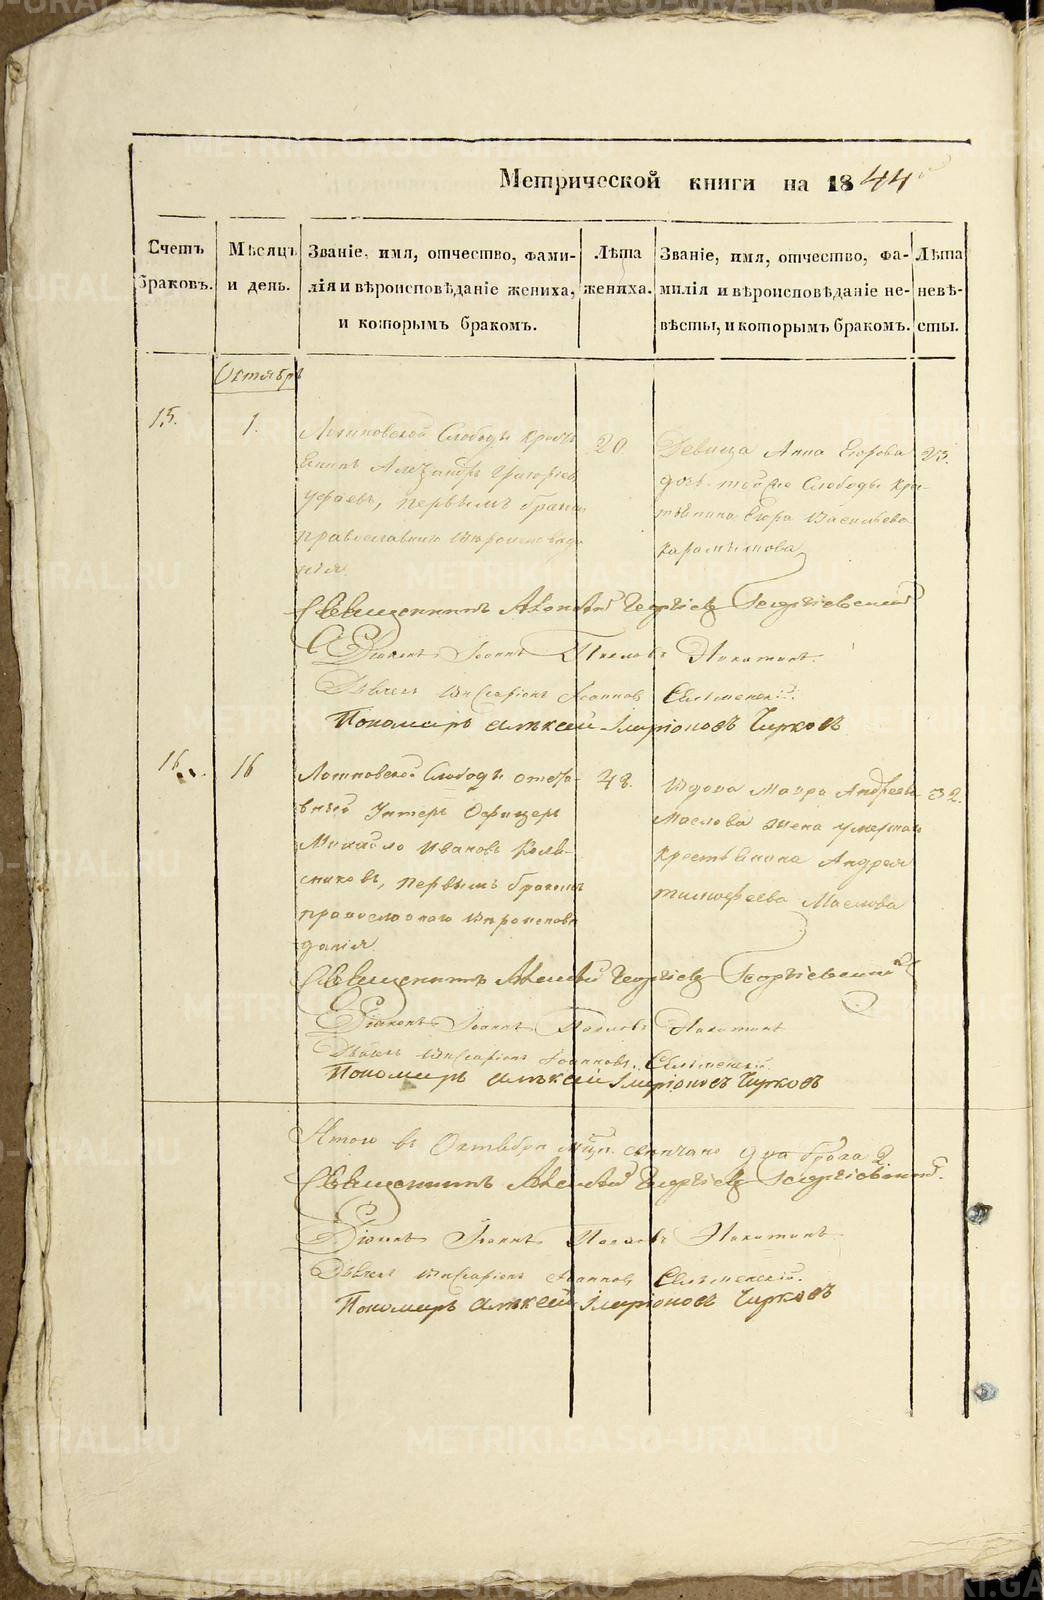 Метрической книги на 1844
Счетъ браковъ.
Мѣсяцъ и день.
Званіе, имя, отчество, фами-
лія и вѣроисповѣданіе жениха,
и которымъ бракомъ.
Лѣта жениха.
Званіе, имя, отчество, фа-
милія и вѣроисповѣданіе не-
вѣсты, и которымъ бракомъ.
Лѣта невѣ-
сты.
Октябрь
15.
1.
Слободы крест
янинъ Александръ Григорьевъ
первымъ бракомъ
православнаго вѣроисповѣда
нія
20
Девица Анна Егорова
дочь той же Слободы кре-
стьянина Егора Васильева
23.
Священникъ Алексѣй Георгіевъ Георгіевскій
Діаконъ Іоаннъ Павловъ Никитинъ
Дьячекъ Виссаріонъ Іоанновъ
Пономарь Алексей Иларіоновъ Чирковъ
16.
16
Слободы отста-
вный Унтеръ Офицеръ
Михайло Ивановъ Колѣ-
сниковъ, первымъ бракомъ
православнаго вѣроисповѣ
данія
48.
Вдова Мавра Андреева
Маслова жена умершаго
крестьянина Андрея
Тимофеева Маслова
32.
Священникъ Алексѣй Георгіевъ Георгіевскій
Діаконъ Іоаннъ Павловъ Никитинъ
Дьячекъ Виссаріонъ Іоанновъ
Пономарь Алексей Иларіоновъ Чирковъ
Итого въ Октябрѣ мцѣ свенчано два брака 2
Священникъ Алексѣй Георгіевъ Георгіевскій.
Діаконъ Іоаннъ Павловъ Никитинъ
Дьячекъ Виссаріонъ Іоанновъ
Пономарь Алексей Иларіоновъ Чирковъ
METRIKI.GASO-URAL.RU